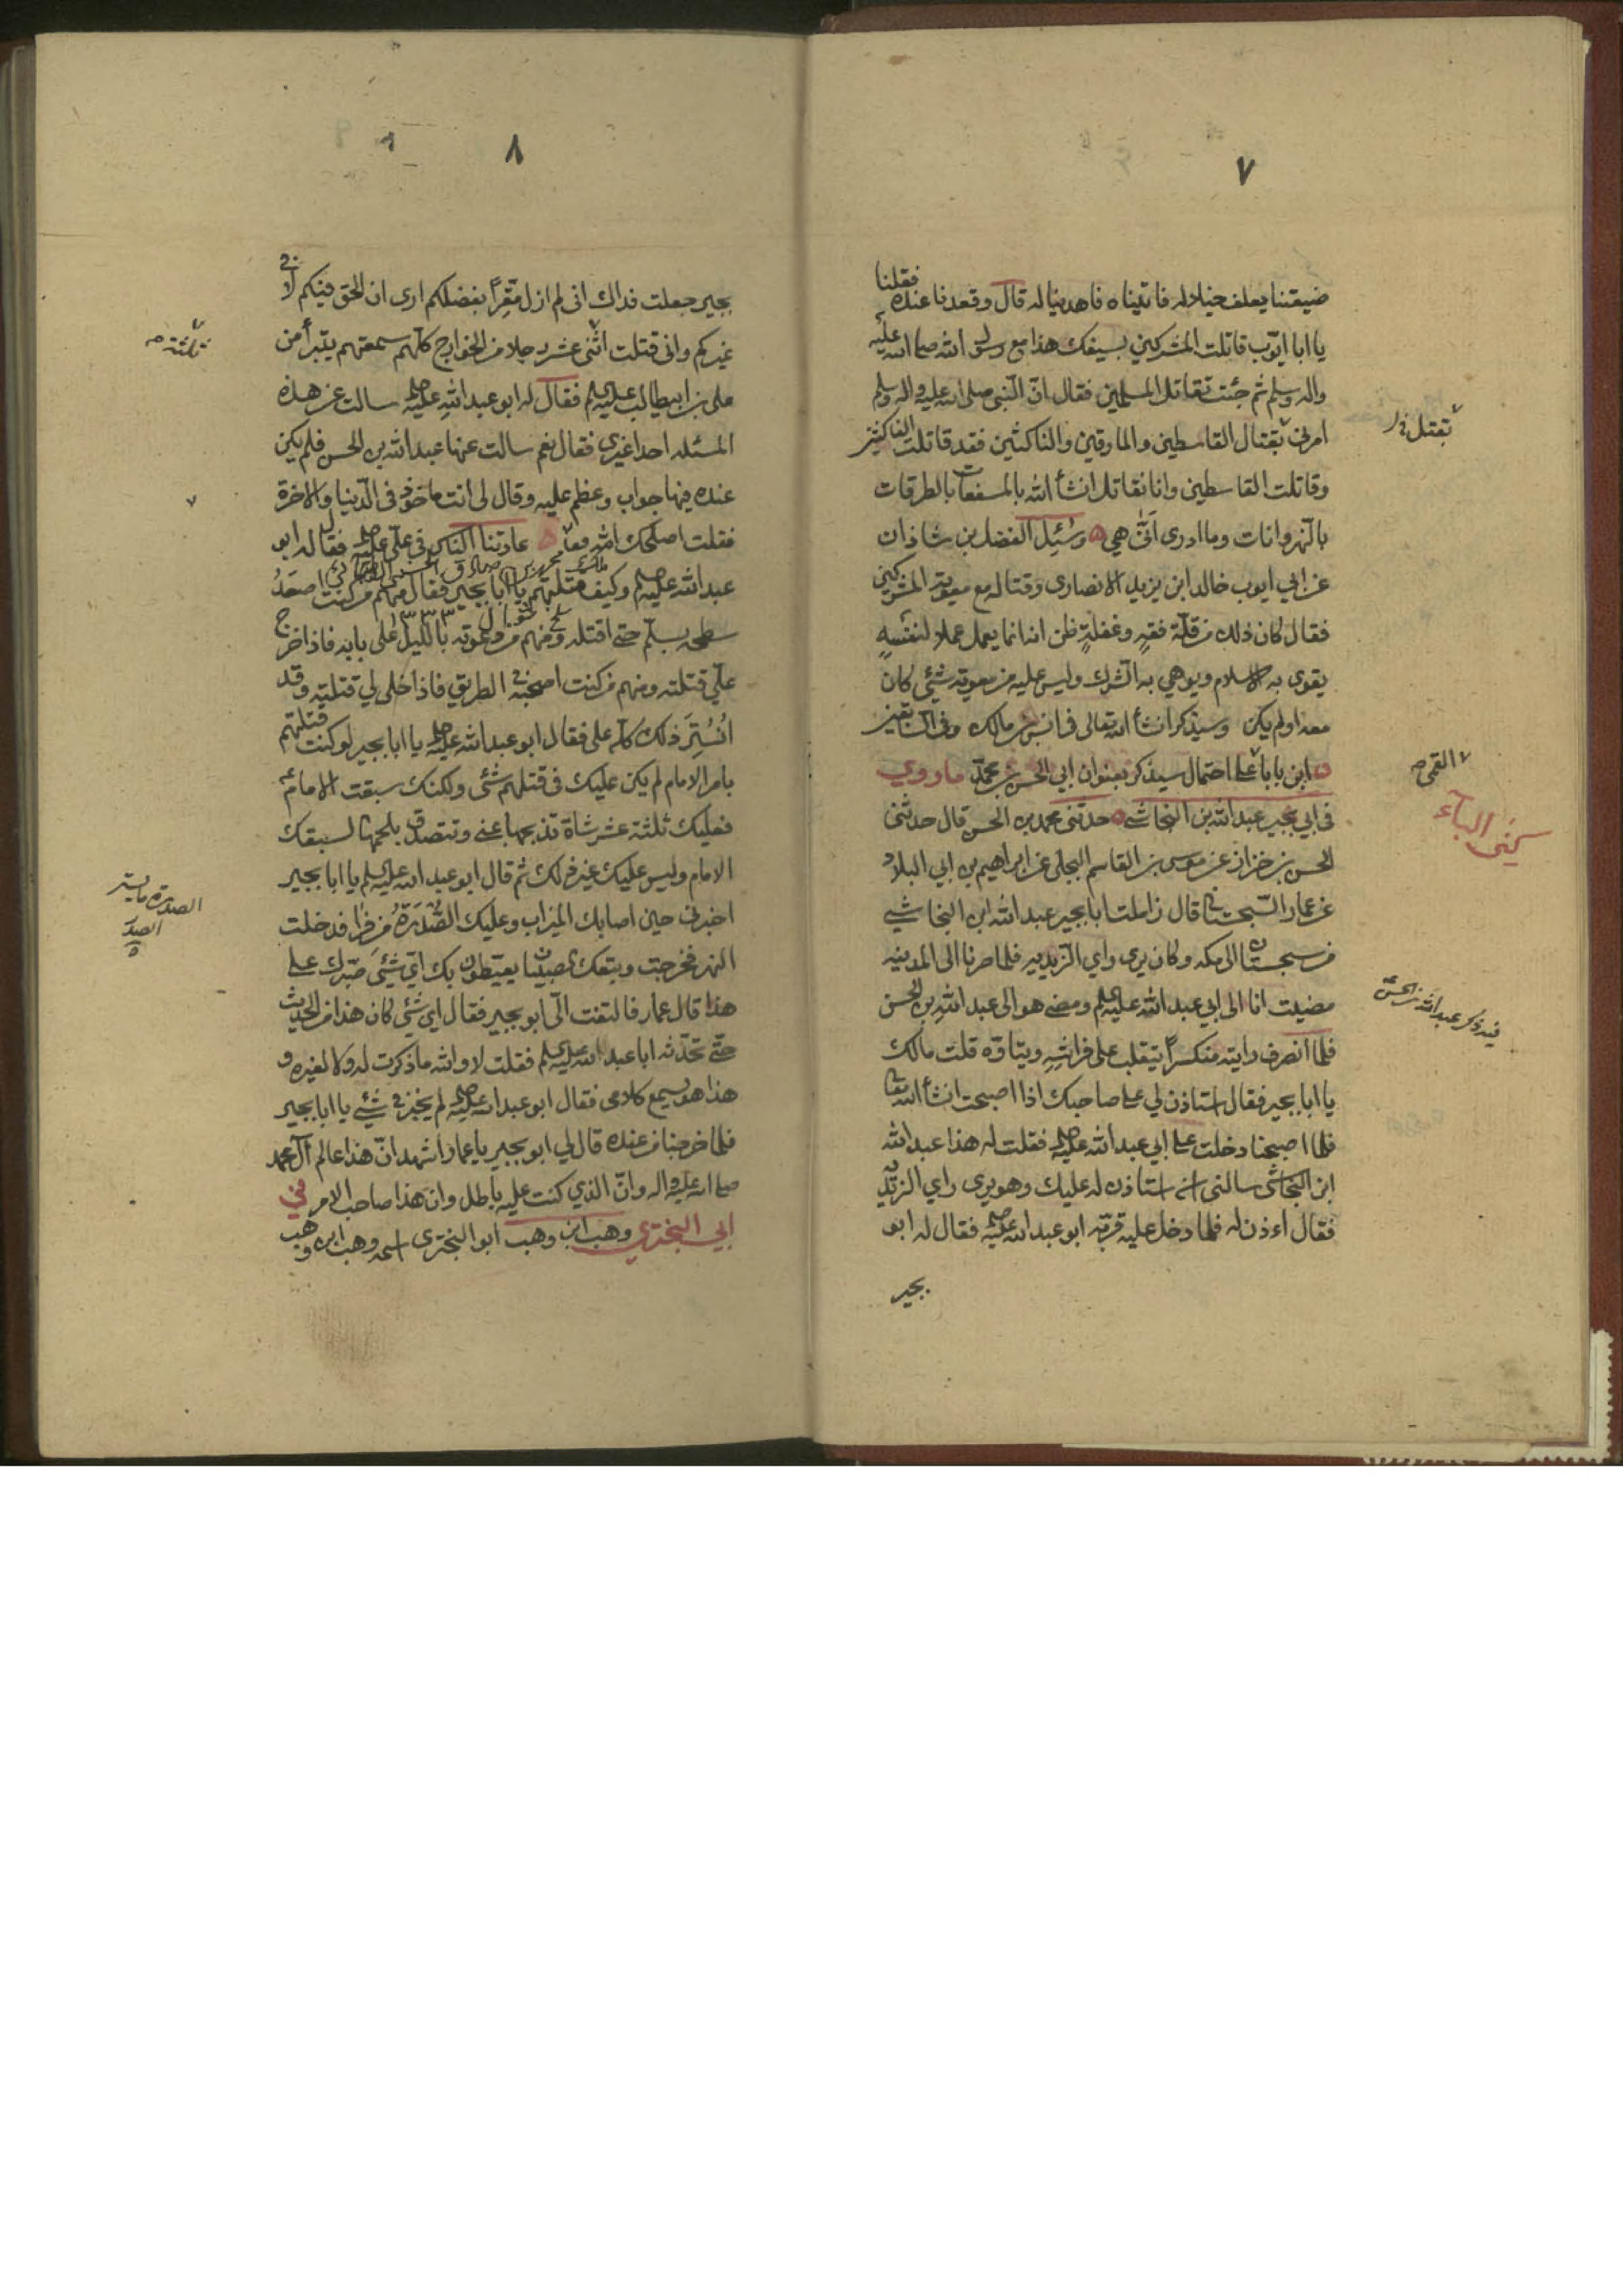 ٧
ضيعتنا يعلف خيلا له فاتيناه فاهدينا له قال وقعدنا عنده فقلنا
يا ابا ايوب قاتلت المشركين بسيفك هذا مع رسول الله صلى الله عليه
واله وسلم ثم جئت تقاتل المسلمين فقال ان النبي صلى الله عليه واله وسلم
امرني بقتال القاسطين والمارقين والناكثين فقد قاتلت الناكثين
وقاتلت القاسطين وانا نقاتل انشأ الله بالمسفعات بالطرقات
بالنهروانات وما ادرى انى هي وسئيل الفضل بن شاذان
عن ابي ايوب خالد ابن يزيد الانصارى وقتاله مع معوية المشركين
فقال كان ذلك من قلة فقه وغفلة ظن انه انما يعمل عملا لنفسه
يقوى به الاسلام ويوهي به الشرك وليس عليه من معوية شئ كان
معه اولم يكن وسيذكر انشأ الله تعالى في انس بن مالك
ابن بابا على احتمال سيذكر بعنوان ابي الحسن بن محمد ماروي
في ابي بجير عبد الله بن النجاشي حدثني محمد بن الحسن قال حدثني
الحسن بن خرزاذ عن موسى بن القاسم البجلى عن ابراهيم بن ابي البلاد
عن عمار السجستاني قال زاملت ابا بجير عبد الله ابن النجاشي
من سجستان الى مكه وكان يرى راي الزيديه فلما صرنا الى المدينه
مضيت انا الى ابي عبد الله عليه السلم ومضى هو الى عبد الله بن الحسن
فلما انصرف رايته منكسراً يتقلب على فراشه ويتاوه قلت مالك
يا ابا بجير فقال استاذن لي على صاحبك اذا اصبحت انشأ الله تعا
فلما اصبحنا دخلت على ابي عبد الله عليه فقلت له هذا عبد الله
ابن النجاشى سالنى ان استاذن له عليك وهو يرى راي الزيديه
فقال اءذن له فلما دخل عليه قربه ابو عبد الله عليه فقال له ابو
بجير
بقتل
القمي
كنى الباء
فيه ذكر عبد الله بن الحسن
٨
بجير جعلت فداك انى لم ازل مقراً بفضلكم ارى ان الحق فيكم لا في
غيركم وانى قتلت اثنى عشر رجلا من الخوارج كلهم سمعتهم يتبرأ من
على بن ابيطالب عليه السلم فقال له ابو عبد الله عليه سالت عن هذه
المسئله احدا غيرى فقال نعم سالت عنها عبد الله بن الحسن فلم يكن
عنده فيها جواب وعظم عليه وقال لى انت ماخوذ في الدنيا والاخرة
فقلت اصلحك الله عادتنا الناس في على عليه فقال له ابو
عبد الله عليه وكيف قتلتهم يا ابا بجير فقال منهم من كنت اصعد
سطحه بسلم حتى اقتله ومنهم من دعوته بالليل على بابه فاذا خرج
على قتلته ومنهم من كنت اصحبه في الطريق فاذا خلى لي قتلته وقد
استتر ذلك كله على فقال ابو عبد الله عليه يا ابا بجير لو كنت قتلتهم
بامر الامام لم يكن عليك في قتلهم شئ ولكنك سبقت الامام
فعليك ثلثة عشر شاة تذبحها بمنى وتتصدق بلحمها لسبقك
الامام وليس عليك غير ذلك ثم قال ابو عبد الله عليه السلم يا ابا بجير
اخبرنى حين اصابك الميزاب وعليك الصدرة من فرا فدخلت
النهر فخرجت وتبعك الصبيان يعيطون بك اي شئ صبرك على
هذا قال عمار فالتفت الى ابو بجير فقال اي شئ كان هذا من الحديث
حتى تحدثه ابا عبد الله عليه السلم فقلت لا والله ما ذكرت له ولا لغيره و
هذا هو يسمع كلامى فقال ابو عبد الله عليه لم يخبرنى شئ يا ابا بجير
فلما خرجنا من عنده قال لي ابو بجير يا عمار اشهد ان هذا عالم آل محمد
صلى الله عليه واله وان الذي كنت عليه باطل وان هذا صاحب الامر في
ابي البختري وهب ابن وهب ابو البخترى اسمه وهب ابن وهب
ثلثة
الصدرة